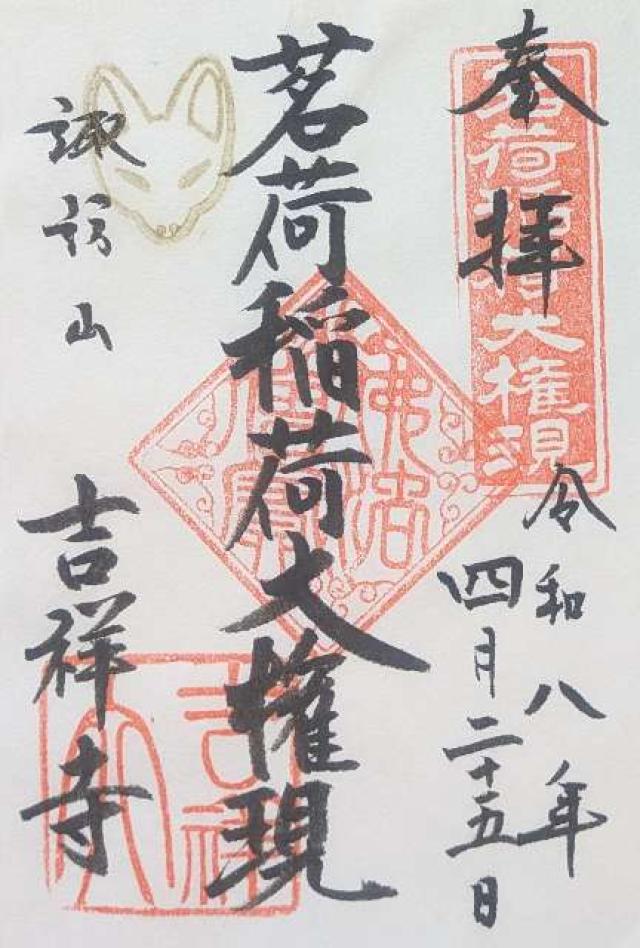 奉拝
令和八年
四月二十五日
茗荷稲荷大権現
諏訪山
吉祥寺
茗荷稲荷大権現
佛法僧寶